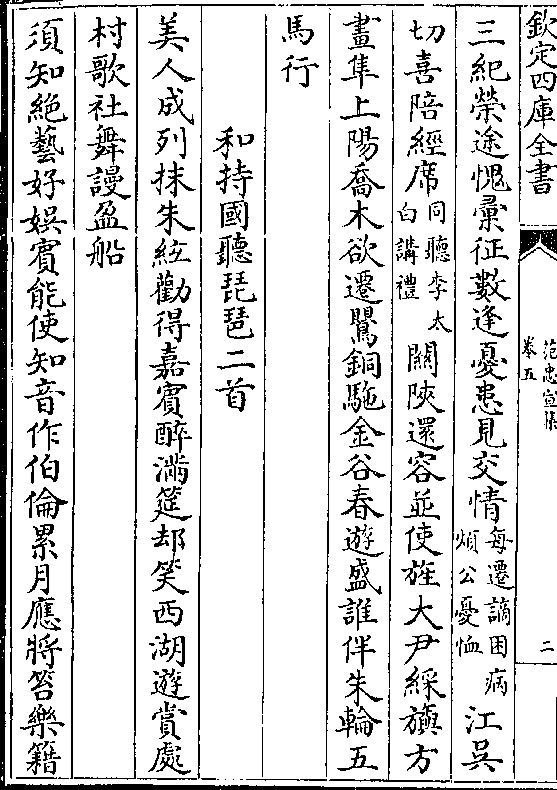 欽定四庫全書
范忠宣集
卷五
二
三紀榮途愧彚征數逢憂患見交情每遷謫困病煩公憂恤江吳
切喜陪經席同聽李太白講禮關陝還容並使旌大尹綵旟方
畫隼上陽喬木欲遷鸎銅駞金谷春遊盛誰伴朱輪五
馬行
和持國聽琵琶二首
美人成列抹朱絃勸得嘉賓醉滿筵却笑西湖遊賞處
村歌社舞謾盈船
須知絶藝好娯賓能使知音作伯倫累月應將笞樂籍